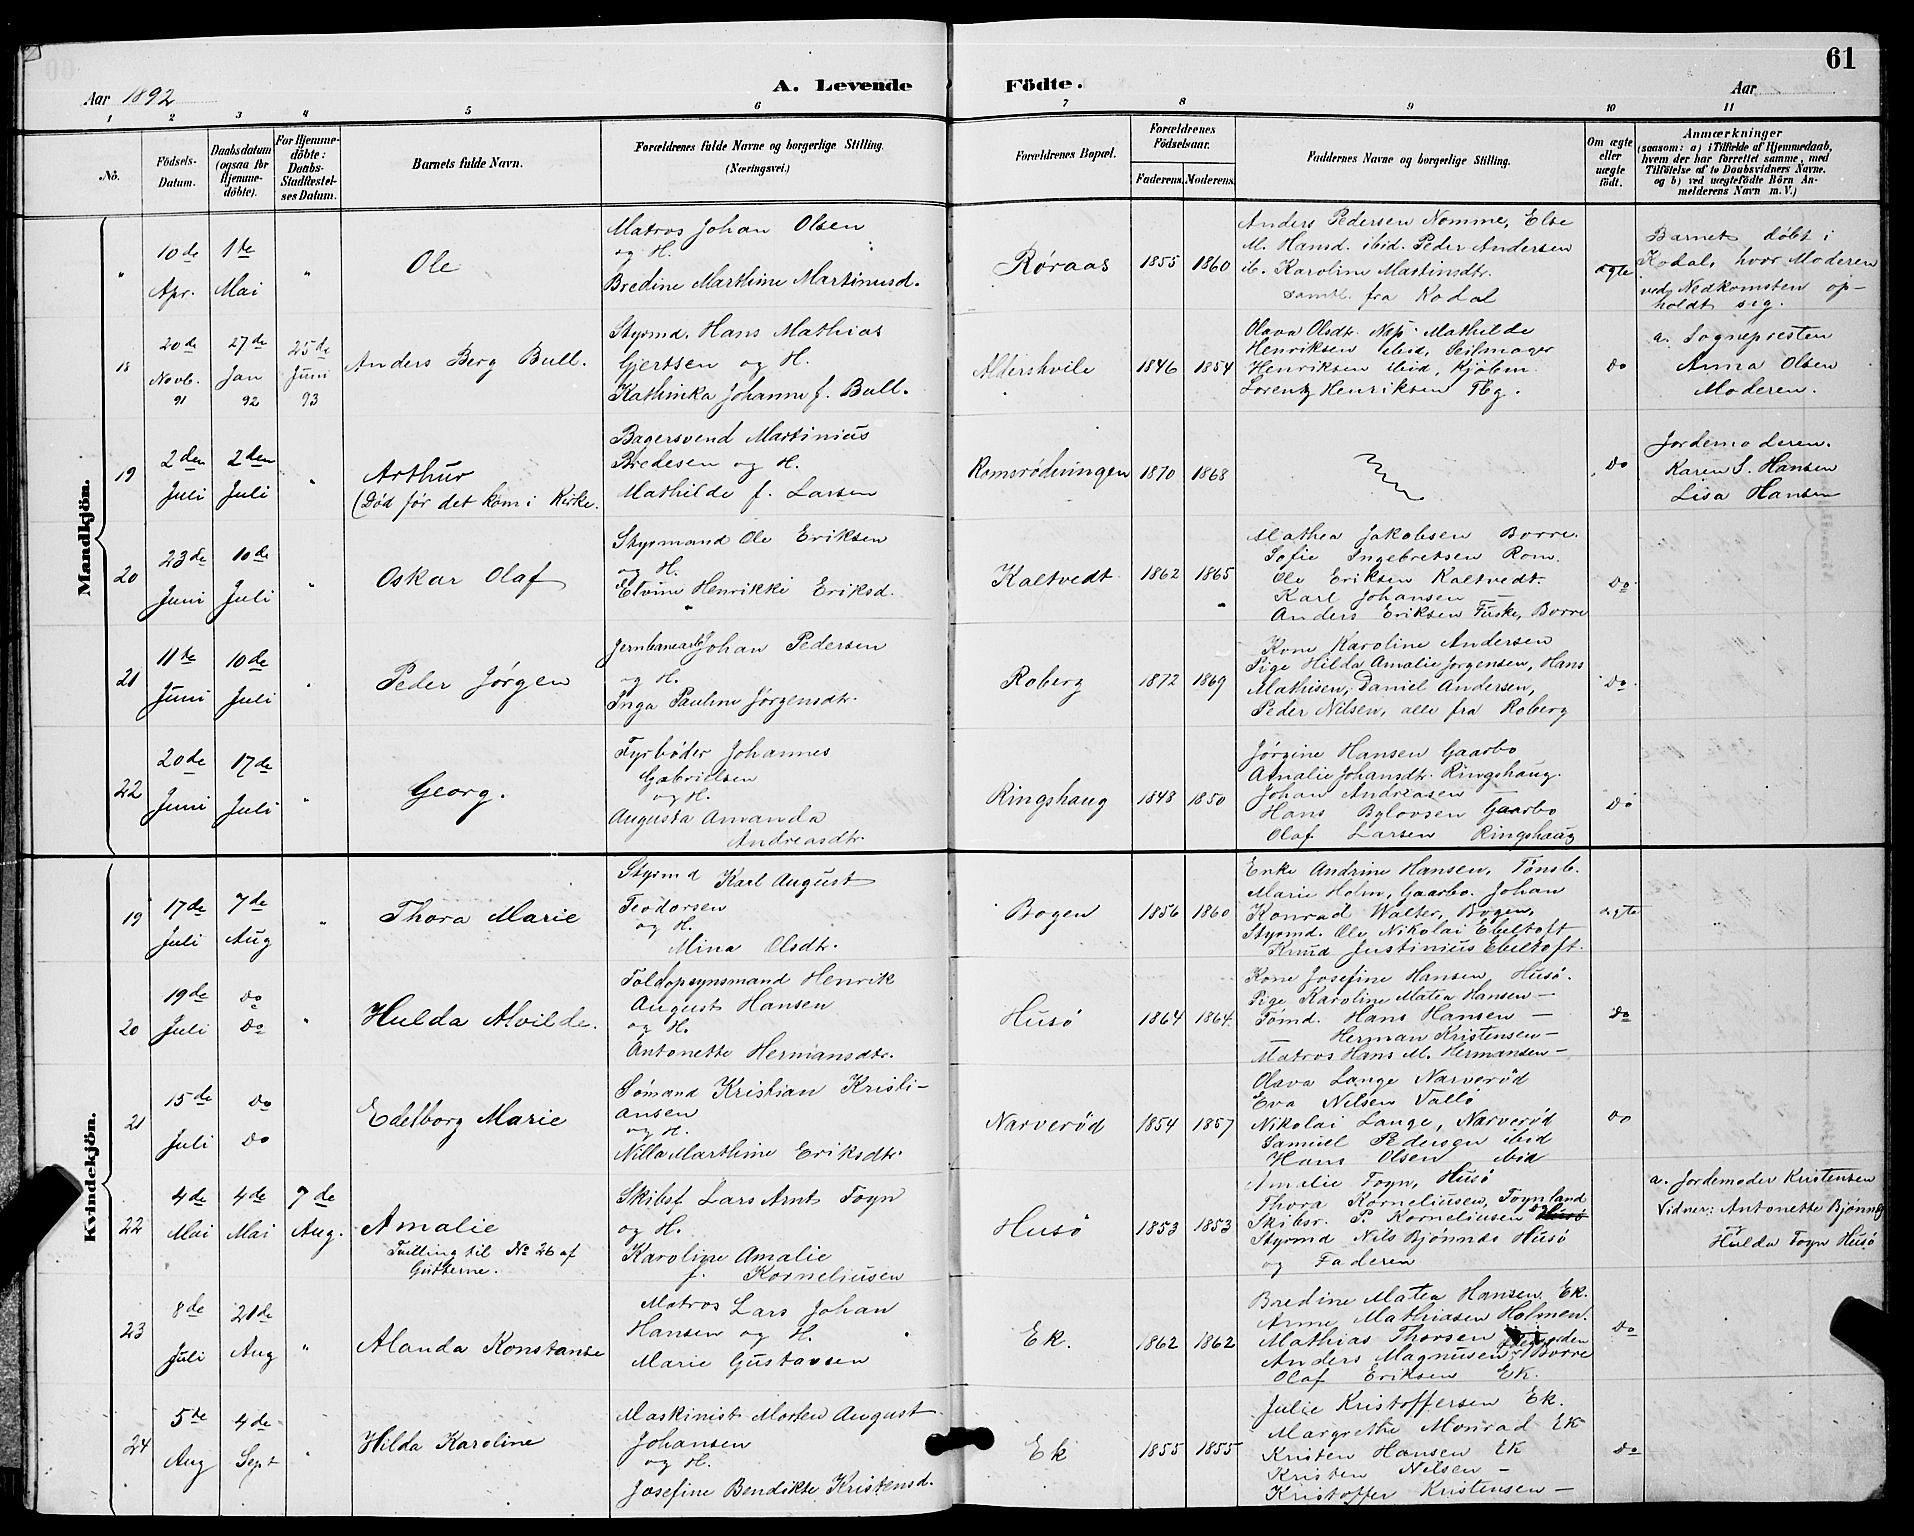 61
Aar 1892
A. Levende
Födte.
Aar
1 2 3 4 5 6 7 8 9 10 11
No.
Födsels-
Datum.
Daabsdatum
(ogsaa for
Hjemme-
döbte).
For Hjemme-
döbte:
Daabs-
Stadfæstel-
ses Datum.
Barnets fulde Navn.
Forældrenes fulde Navne og borgerlige Stilling.
(Næringsvei.)
Forældrenes Bopæl.
Forældrenes
Födselsaar.
Faderens. Moderens.
Faddernes Navne og borgerlige Stilling.
Om ægte
eller
uægte
født.
Anmærkninger
(saasom: a) i Tilfælde af Hjemmedaab,
hvem der har forrettet samme, med
Tilföielse af to Daabsvidners Navne,
og b) ved uægtefödte Börn An-
melderens Navn m. V.)
Mandkjön.
" 10de Apr. 1te Mai "
Ole
Matros Johan Olsen
og H.
Bredine Marthine Martinusd.
Røraas 1855 1860
Anders Pedersen Nomme, Else
M. Hansd. ibid. Peder Andersen
ib. Karoline Martinsdtr.
samtl. fra Kodal
ægte
Barnet døbt i
Kodal, hvor Moderen
ved Nedkomsten op-
holdt sig.
18 20de Novb. 91 27de Jan 92 25de Juni 93
Anders Berg Bull.
Styrmd. Hans Mathias
Gjertsen og H.
Kathinka Johanne f. Bull.
Aldershvile 1846 1854
Olava Olsdtr. Nes. Mathilde
Henriksen ibid, Seilmager
Henriksen ibid, Kjøbm.
Lorentz Henriksen Tbg.
Do
a. Sognepresten
Anna Olsen
Moderen.
19 2den Juli 2den Juli "
Arthur
(Død før det kom i Kirke.
Bagersvend Martinius
Bredesen og H.
Mathilde f. Larsen
Romsrødningen 1870 1868
Do
Jordemoderen.
Karen S. Hansen
Lisa Hansen
20 23de Juni 10de Juli "
Oskar Olaf
Styrmand Ole Eriksen
og H.
Elvine Henrikke Eriksd.
Kaltvedt 1862 1865
Mathea Jakobsen Borre.
Sofie Ingebretsen Rom.
Ole Eriksen Kaltvedt.
Karl Johansen —
Anders Eriksen Fuske, Borre
Do
21 11te Juni 10de Juli "
Peder Jørgen
Jernbanearb. Johan Pedersen
og H.
Inga Pauline Jørgensdtr.
Roberg 1872 1869
Kone Karoline Andersen
Pige Hilda Amalie Jørgensen, Hans
Mathisen, Daniel Andersen,
Peder Nilsen, alle fra Roberg
Do
22 20de Juni 17de Juli "
Georg.
Fyrbøder Johannes
Gabrielsen
og H.
Augusta Amanda
Andreasdtr.
Ringshaug 1848 1850
Jørgine Hansen Gaarbo
Amalie Johansdtr. Ringshaug.
Johan Andreasen —
Hans Bylovsen Gaarbo
Olaf Larsen Ringshaug
Do
Kvindekjön.
19 17de Juli 7de Aug "
Thora Marie
Styrmd Karl August
Teodorsen
og H.
Mina Olsdtr.
Bogen 1856 1860
Enke Andrine Hansen, Tønsb.
Marie Holm, Gaarbo. Johan
Konrad Walter, Bogen,
Styrmd. Ole Nikolai Ebeltoft
Knud Justinius Ebeltoft.
ægte
20 19de Juli Do Do "
Hulda Alvilde.
Toldopsynsmand Henrik
August Hansen
og H.
Antonette Hermansdtr.
Husø 1864 1864.
Kone Josefine Hansen, Husø.
Pige Karoline Matea Hansen —
Tømd. Hans Hansen —
Herman Kristensen —
Matros Hans M. Hermansen —
Do
21 15de Juli Do Do
Edelborg Marie
Sømand Kristian Kristi-
ansen
og H.
Nilla Marthine Eriksdtr.
Narverød 1854 1857
Olava Lange Narverød
Eva Nilsen Vallø
Nikolai Lange, Narverød
Samuel Pedersen ibid
Hans Olsen ibid
Do
22 4de Mai 4de Mai 7de Aug.
Amalie
Tvilling til No 26 af
Gutterne.
Skibsf Lars Arnt Foyn
og H.
Karoline Amalie
f. Korneliusen
Husø 1853 1853
Amalie Foyn, Husø
Thora Korneliusen, Foynland
Skibsr. P. Korneliusen Do Husø
Styrmd Nils Bjønnes Husø
og Faderen
a. Jordemoder Kristensen
Vidner: Antonette Bjønnes
Hulda Foyn Husø
23 8de Juli 21de Aug "
Alanda Konstanse
Matros Lars Johan
Hansen og H.
Marie Gustavsen
Ek. 1862 1862
Bredine Matea Hansen, Ek.
Anne Mathiasen Holmen.
Mathias Thorsen
Anders Magnusen Borre
Olaf Eriksen Ek.
Do
24 5te Aug 4de Sept "
Hilda Karoline
Maskinist Morten August
Johansen
og H.
Josefine Bendikte Kristensd.
Ek 1855 1855
Julie Kristoffersen Ek.
Margrethe Monrad Ek
Kristen Hansen Ek
Kristen Nilsen —
Kristoffer Kristensen —
Do